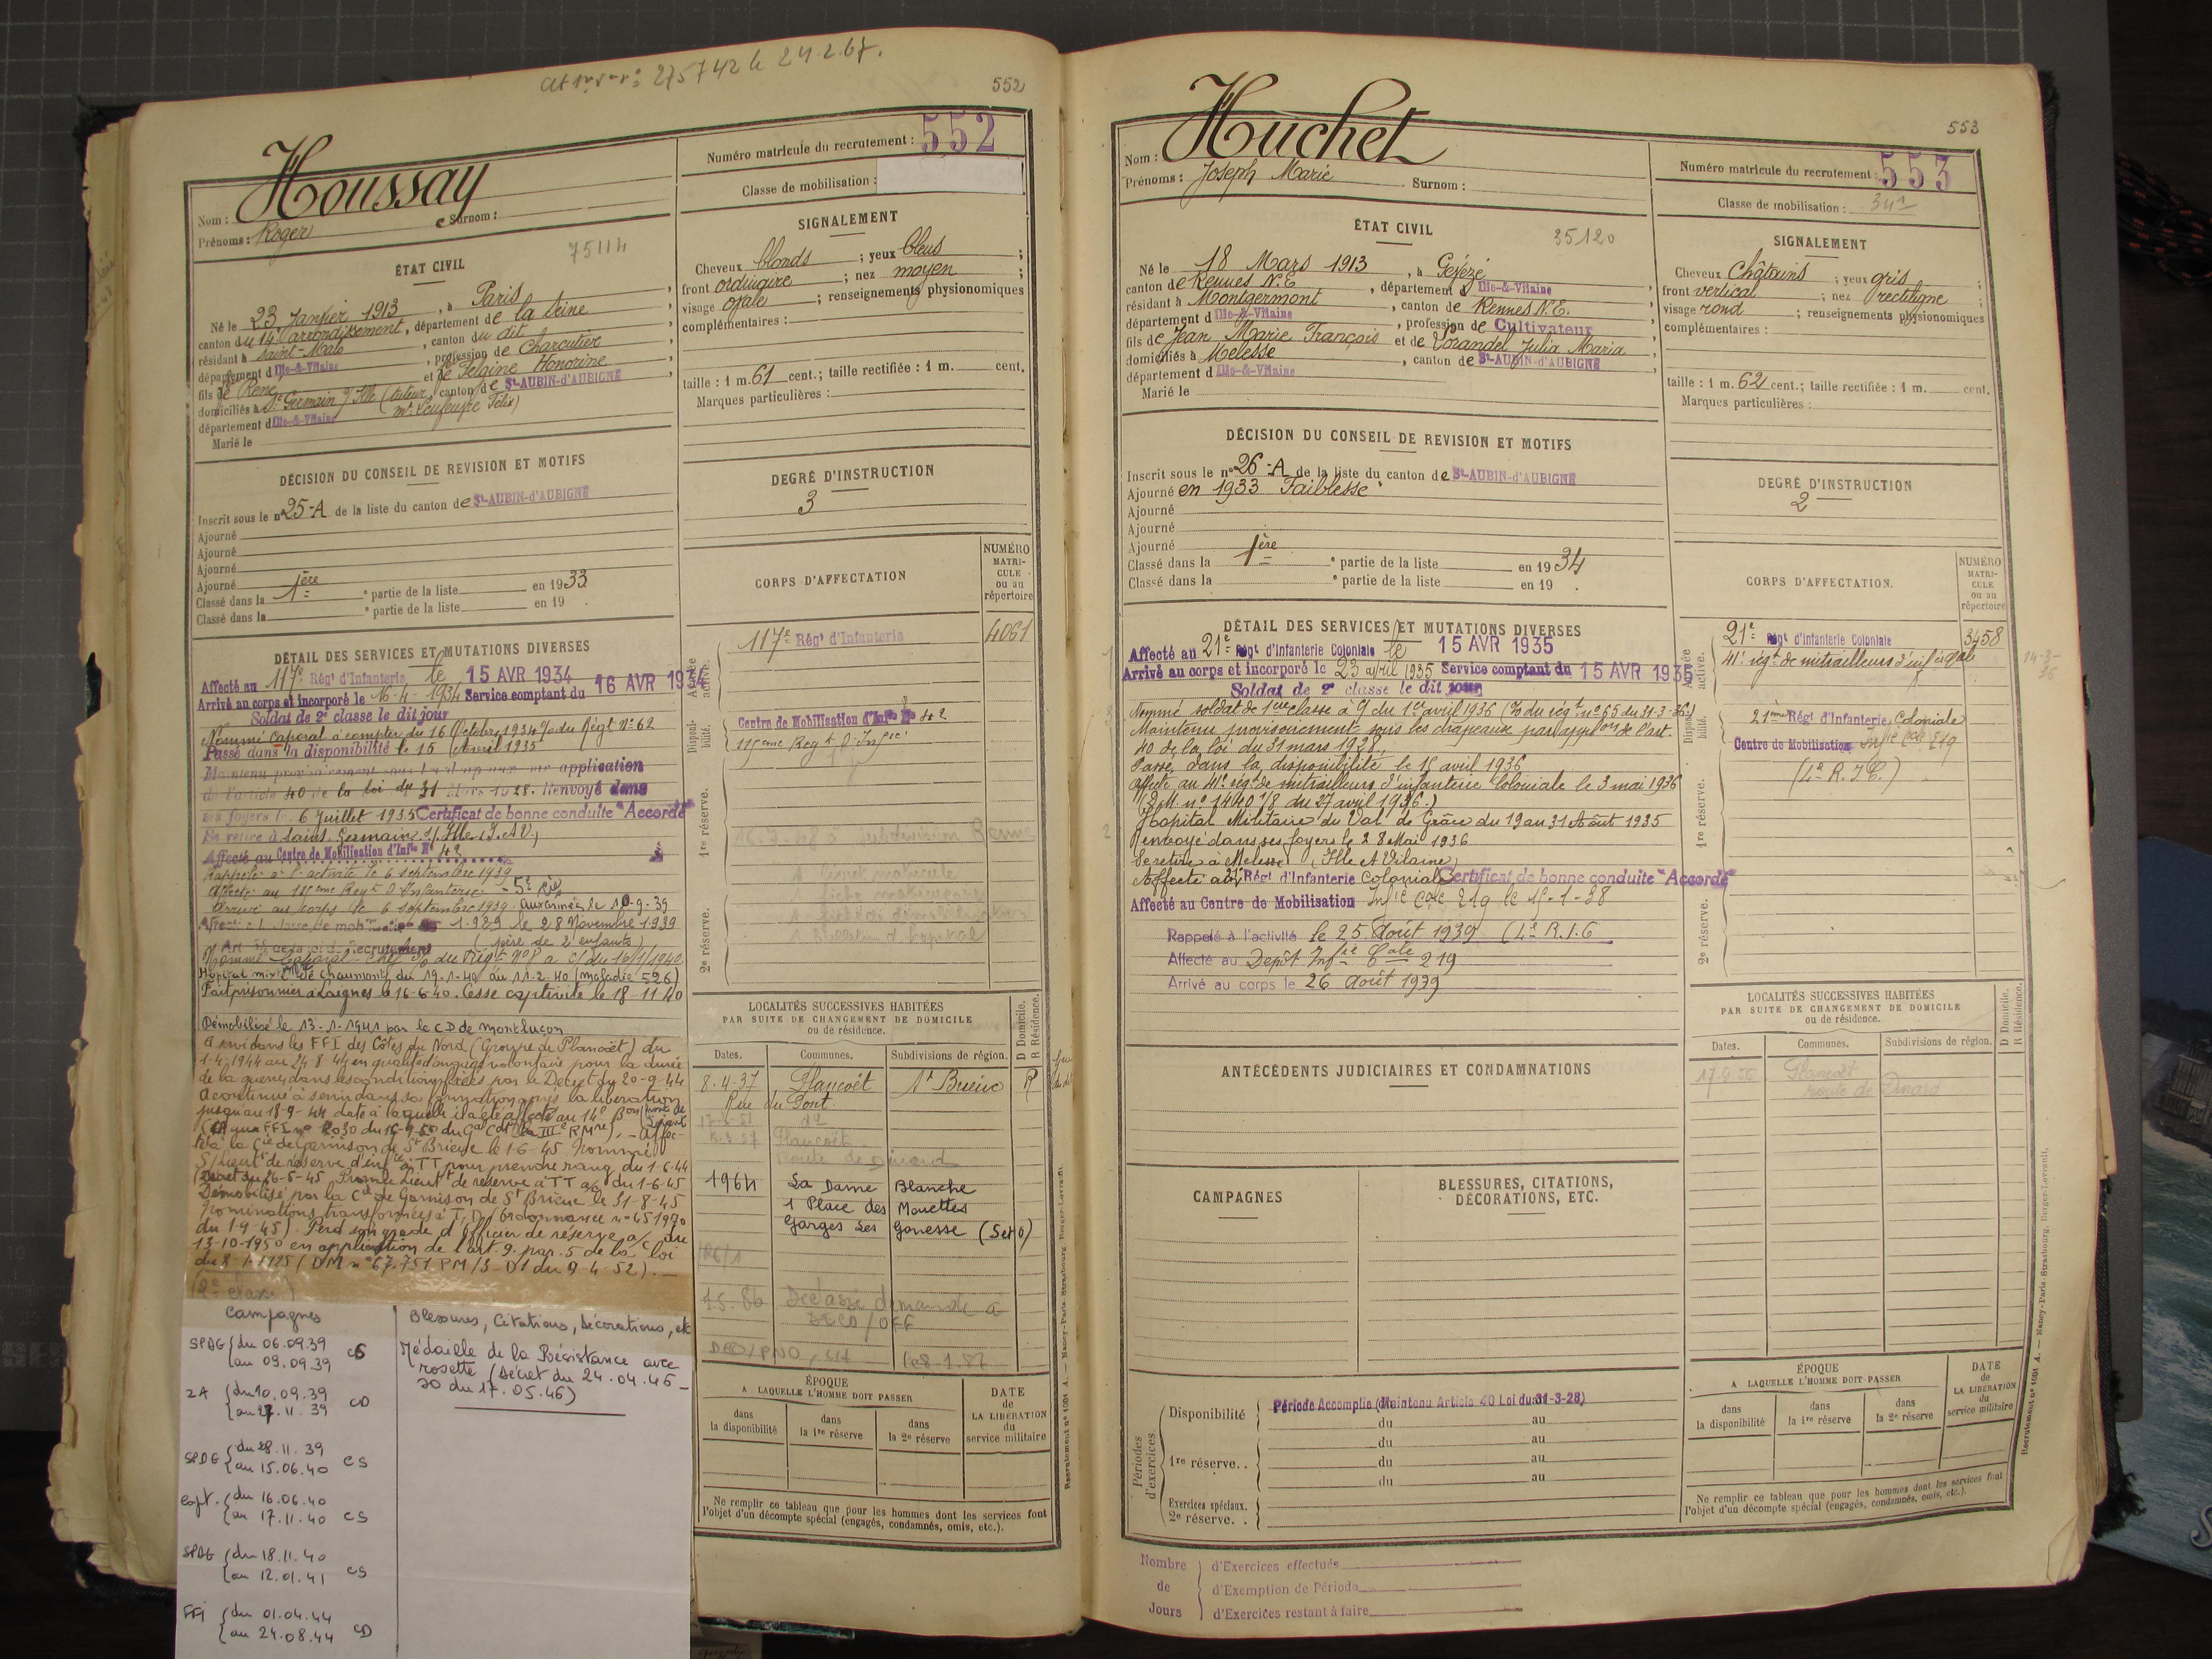 552
Houssay
Nom :
Prénoms : Roger
Surnom :
Numéro matricule du recrutement : 552
Classe de mobilisation :
ÉTAT CIVIL
75114
Né le 23 Janvier 1913, à Paris
canton du 14e arrondissement, département de la Seine
résidant à Saint-Malo, canton du dit
département d'Ille-&-Vilaine, profession de Charcutier
fils de René et de Honorine
domiciliés à St Germain s/ Ille (tuteur, canton de St-AUBIN-d'AUBIGNÉ
département d'Ille-&-Vilaine
Marié le
SIGNALEMENT
Cheveux blonds ; yeux bleus ;
front ordinaire ; nez moyen ;
visage ovale ; renseignements physionomiques
complémentaires :
taille : 1 m. 61 cent.; taille rectifiée : 1 m. cent.
Marques particulières :
DÉCISION DU CONSEIL DE REVISION ET MOTIFS
Inscrit sous le n° 25-A de la liste du canton de St-AUBIN-d'AUBIGNÉ
Ajourné
Ajourné
Ajourné
Ajourné
Classé dans la 1ère partie de la liste en 1933
Classé dans la e partie de la liste en 19 .
DEGRÉ D'INSTRUCTION
3
CORPS D'AFFECTATION
NUMÉRO MATRI-CULE ou au répertoire
Armée active.
117e Régt d'Infanterie
4061
Disponibilité.
Centre de Mobilisation d'Infie N° 42
115eme Regt d'Infie
1re réserve.
2e réserve.
DÉTAIL DES SERVICES ET MUTATIONS DIVERSES
Affecté au 117e Régt d'Infanterie le 15 AVR 1934
Arrivé au corps et incorporé le 16-4-1934 Service comptant du 16 AVR 1934
Soldat de 2e classe le dit jour
Nommé Caporal à compter du 16 Octobre 1934 % du Régt N° 62
Passé dans la disponibilité le 15 Avril 1935
de l'article 40 de la loi du 31 Mars 1928. Renvoyé dans
ses foyers le 6 Juillet 1935 Certificat de bonne conduite "Accordé"
Se retire à Saint Germain s/ Ille (I. et V.)
Affecté au Centre de Mobilisation d'Infie N° 42
Rappelé à l'activité le 6 septembre 1939
Affecté au 115eme Regt d'Infanterie
Arrivé au corps le 6 septembre 1939. aux armées le 10-9-39
1929 le 28 Novembre 1939
(père de 2 enfants)
Nommé Caporal-Chef % du Régt N°8 à c/ du 16/1/1940
Hôpital mixte de Chaumont du 19-1-40 au 11-2-40 (maladie 526)
Fait prisonnier à Laignes le 16-6-40. Cesse captivité le 18-11-40
Démobilisé le 13-1-1941 par le CD de Montluçon
A servi dans les FFI des Côtes du Nord (Groupe de Plancoët) du
1-4-1944 au 24-8-44 en qualité d'engagé volontaire pour la durée
de la guerre, dans les conditions fixées par le Décret du 20-9-44
A continué à servir dans sa formation après la libération
jusqu'au 18-9-44 date à laquelle il a été affecté au 14e Bon
té à la Cie de Garnison de St Brieuc le 1-6-45 Nommé
S/Lieutt de réserve d'infie à TT pour prendre rang du 1-6-44
(Décret du 26-5-45 Promu Lieutt de réserve à TT a/c du 1-6-45
Démobilisé par la Cie de Garnison de St Brieuc le 31-8-45
Nominations transformées à T.D (Ordonnance n° 451970
du 1-9-45). Perd son grade d'Officier de réserve a/c du
13-10-1950 en application de l'art. 9. par. 5 de la loi
du 8-1-1925 (DM n° 67.751 PM/3-D1 du 9-4-52).
LOCALITÉS SUCCESSIVES HABITÉES
PAR SUITE DE CHANGEMENT DE DOMICILE
ou de résidence.
D Domicile. R Résidence.
Dates. Communes. Subdivisions de région.
8.4.37 Plancoët St Brieuc R
Rue du Pont
Plancoët
Route de Dinard
1964 La Dame Blanche
1 Place des Mouettes
Garges Les Gonesse (SetO)
ÉPOQUE
A LAQUELLE L'HOMME DOIT PASSER
DATE de LA LIBÉRATION du service militaire
dans la disponibilité
dans la 1re réserve
dans la 2e réserve
Ne remplir ce tableau que pour les hommes dont les services font
l'objet d'un décompte spécial (engagés, condamnés, omis, etc.).
Campagnes
Blessures, Citations, Décorations, etc
SPDG { du 06.09.39 au 09.09.39 CS
2A { du 10.09.39 au 27.11.39 CD
SPDG { du 28.11.39 au 15.06.40 CS
Capt. { du 16.06.40 au 17.11.40 CS
SPDG { du 18.11.40 au 12.01.41 CS
FFI { du 01.04.44 au 24.08.44 CD
Médaille de la Résistance avec
rosette (Décret du 24.04.46 -
JO du 17.05.46)
553
Huchet
Nom :
Prénoms : Joseph Marie
Surnom :
Numéro matricule du recrutement : 553
Classe de mobilisation :
ÉTAT CIVIL
35120
Né le 18 Mars 1913, à Gévezé
canton de Rennes N.E, département d'Ille-&-Vilaine
résidant à Montgermont, canton de Rennes N.E.
département d'Ille-&-Vilaine, profession de Cultivateur
fils de Jean Marie François et de Lorandel Julia Maria
domiciliés à Melesse, canton de St-AUBIN-d'AUBIGNÉ
département d'Ille-&-Vilaine
Marié le
SIGNALEMENT
Cheveux Châtains ; yeux gris ;
front vertical ; nez rectiligne ;
visage rond ; renseignements physionomiques
complémentaires :
taille : 1 m. 62 cent.; taille rectifiée : 1 m. cent.
Marques particulières :
DÉCISION DU CONSEIL DE REVISION ET MOTIFS
Inscrit sous le n° 26-A de la liste du canton de St-AUBIN-d'AUBIGNÉ
Ajourné en 1933 Faiblesse
Ajourné
Ajourné
Ajourné
Classé dans la 1ère partie de la liste en 1934
Classé dans la e partie de la liste en 19 .
DEGRÉ D'INSTRUCTION
2
CORPS D'AFFECTATION.
NUMÉRO MATRI-CULE ou au répertoire
Armée active.
21e Régt d'Infanterie Coloniale
3458
41e régt de mitrailleurs d'inf. col
Disponibilité.
21ème Régt d'Infanterie Coloniale
Centre de Mobilisation Infie Cale 219
(4e R.I.C.)
1re réserve.
2e réserve.
DÉTAIL DES SERVICES ET MUTATIONS DIVERSES
Affecté au 21e Régt d'Infanterie Coloniale le 15 AVR 1935
Arrivé au corps et incorporé le 23 avril 1935 Service comptant du 15 AVR 1935
Soldat de 2e classe le dit jour
Nommé soldat de 1ère classe à c/ du 1er avril 1936 (% du régt n° 65 du 31-3-36)
Maintenu provisoirement sous les drapeaux par appon de l'art.
40 de la loi du 31 mars 1928.
Passé dans la disponibilité le 15 avril 1936
Affecté au 41e régt de mitrailleurs d'infanterie Coloniale le 3 mai 1936
(D.M. n° 1440 1/8 du 27 avril 1936.)
Hôpital Militaire du Val de Grâce du 19 au 31 Août 1935
Renvoyé dans ses foyers le 28 Mai 1936
Se retire à Melesse (Ille et Vilaine)
Affecté au 21e Régt d'Infanterie Coloniale Certificat de bonne conduite "Accordé"
Affecté au Centre de Mobilisation Infie Cale 219 le 15-1-38
Rappelé à l'activité le 25 Août 1939 (4e R.I.C
Affecté au Dépôt Infie Cale 219
Arrivé au corps le 26 Août 1939
ANTÉCÉDENTS JUDICIAIRES ET CONDAMNATIONS
CAMPAGNES
BLESSURES, CITATIONS, DÉCORATIONS, ETC.
LOCALITÉS SUCCESSIVES HABITÉES
PAR SUITE DE CHANGEMENT DE DOMICILE
ou de résidence.
D Domicile. R Résidence.
Dates. Communes. Subdivisions de région.
Plancoët
route de Dinard
Périodes d'exercices.
Disponibilité
Période Accomplie (Maintenu Article 40 Loi du 31-3-28)
du au
1re réserve..
du au
du au
du au
Exercices spéciaux.
2e réserve. .
ÉPOQUE
A LAQUELLE L'HOMME DOIT PASSER
DATE de LA LIBÉRATION du service militaire
dans la disponibilité
dans la 1re réserve
dans la 2e réserve
Ne remplir ce tableau que pour les hommes dont les services font
l'objet d'un décompte spécial (engagés, condamnés, omis, etc.).
Nombre de Jours
d'Exercices effectués
d'Exemption de Période
d'Exercices restant à faire